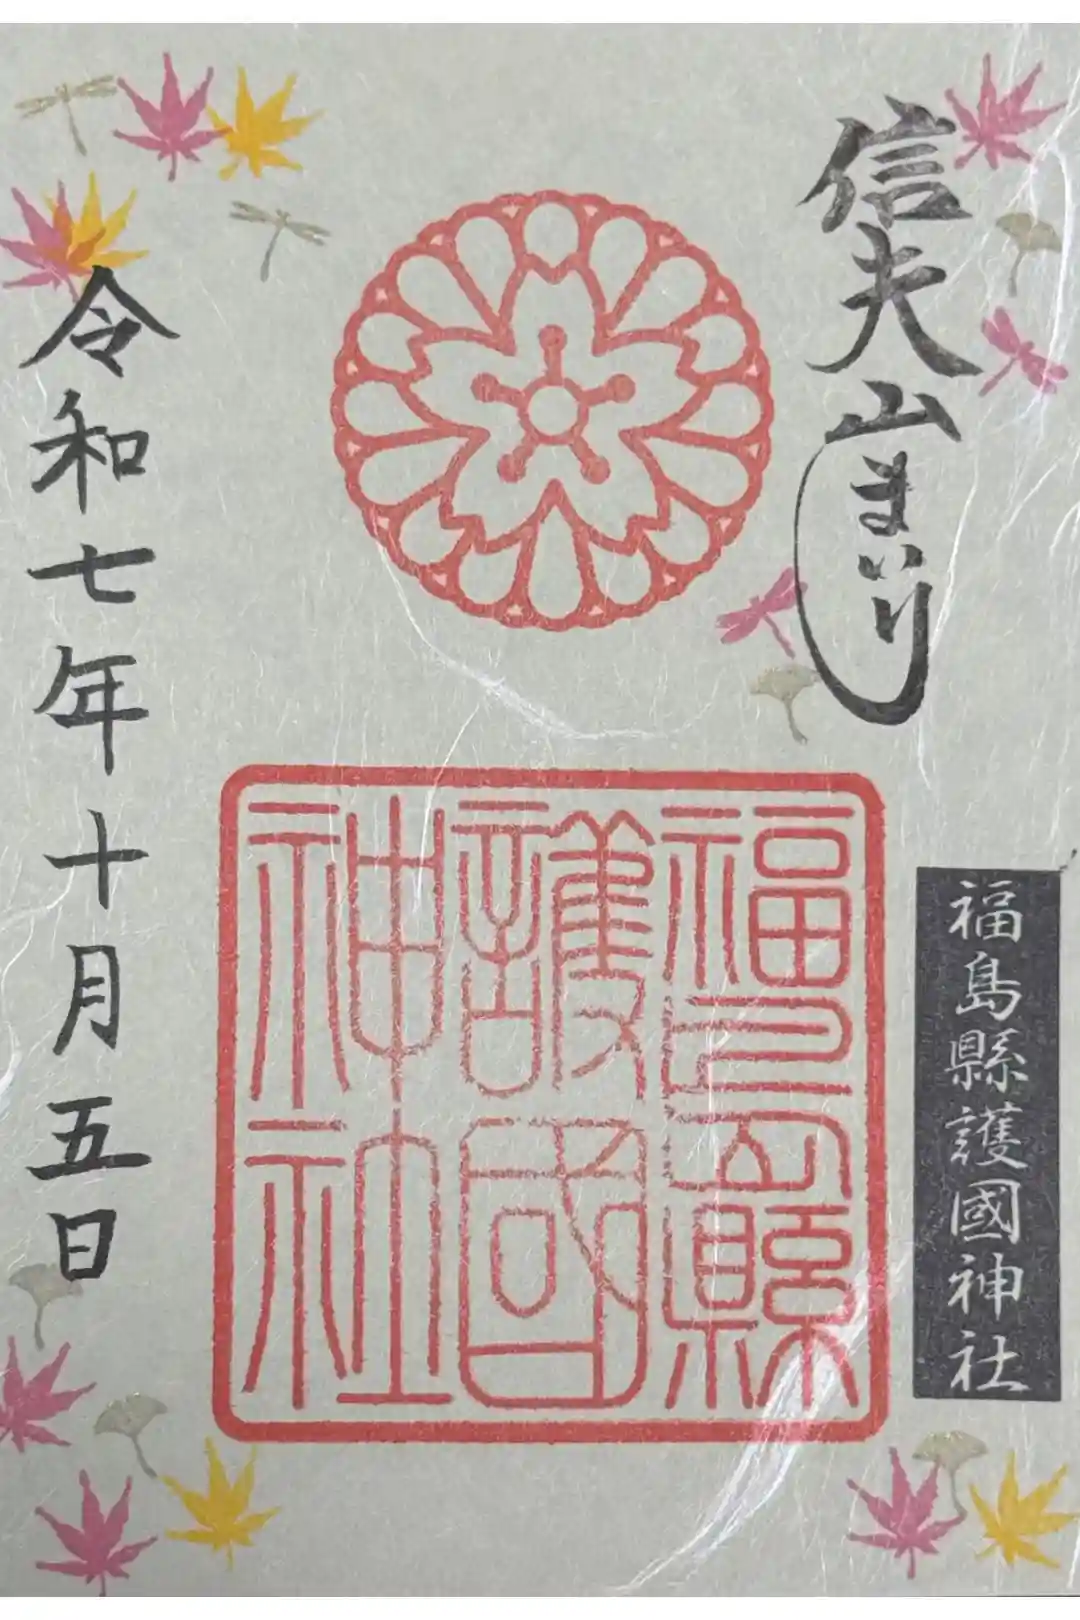 信夫山まいり
福島縣護國神社
福島縣
護國
神社
令和七年十月五日